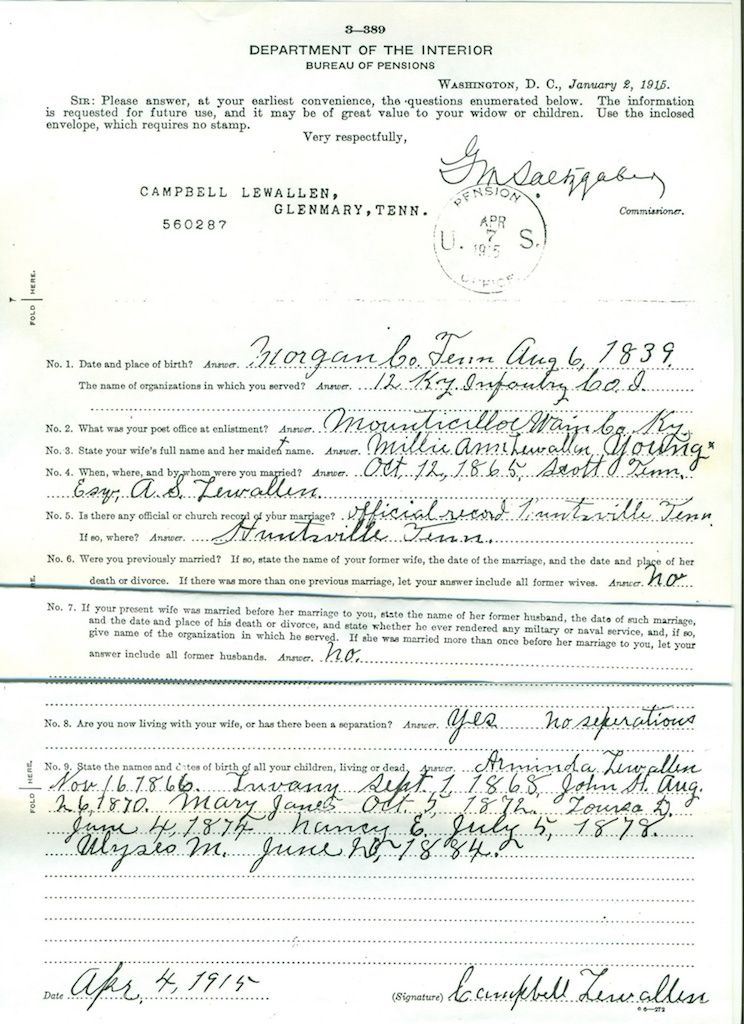 3—389
DEPARTMENT OF THE INTERIOR
BUREAU OF PENSIONS
WASHINGTON, D. C., January 2, 1915.
SIR: Please answer, at your earliest convenience, the questions enumerated below. The information
is requested for future use, and it may be of great value to your widow or children. Use the inclosed
envelope, which requires no stamp.
Very respectfully,
G M Saltzgaber
Commissioner.
CAMPBELL LEWALLEN,
GLENMARY, TENN.
560287
PENSION
APR
U. 7 S.
1915
OFFICE
FOLD HERE.
No. 1. Date and place of birth? Answer. Morgan Co. Tenn Aug 6, 1839.
The name of organizations in which you served? Answer. 12 Ky Infantry Co. I.
No. 2. What was your post office at enlistment? Answer. Wain Co. Ky.
No. 3. State your wife's full name and her maiden name. Answer. Millie Ann Lewallen Young
No. 4. When, where, and by whom were you married? Answer. Oct 12, 1865, Scott Tenn.
Esq. A. S. Lewallen.
No. 5. Is there any official or church record of your marriage? official record Huntsville Tenn
If so, where? Answer. Huntsville Tenn.
No. 6. Were you previously married? If so, state the name of your former wife, the date of the marriage, and the date and place of her
death or divorce. If there was more than one previous marriage, let your answer include all former wives. Answer. No
No. 7. If your present wife was married before her marriage to you, state the name of her former husband, the date of such marriage,
and the date and place of his death or divorce, and state whether he ever rendered any military or naval service, and, if so,
give name of the organization in which he served. If she was married more than once before her marriage to you, let your
answer include all former husbands. Answer. No.
No. 8. Are you now living with your wife, or has there been a separation? Answer. Yes no seperations
No. 9. State the names and dates of birth of all your children, living or dead. Answer. Arminda Lewallen
Nov 16 1866. Sept. 1 1868, John S. Aug.
26, 1870. Mary Jane Oct. 5, 1872. D.
June 4, 1874 Nancy E. July 5, 1878.
Ulyses M. June 1884.
FOLD HERE.
Date Apr. 4, 1915
(Signature) Campbell Lewallen
6—272